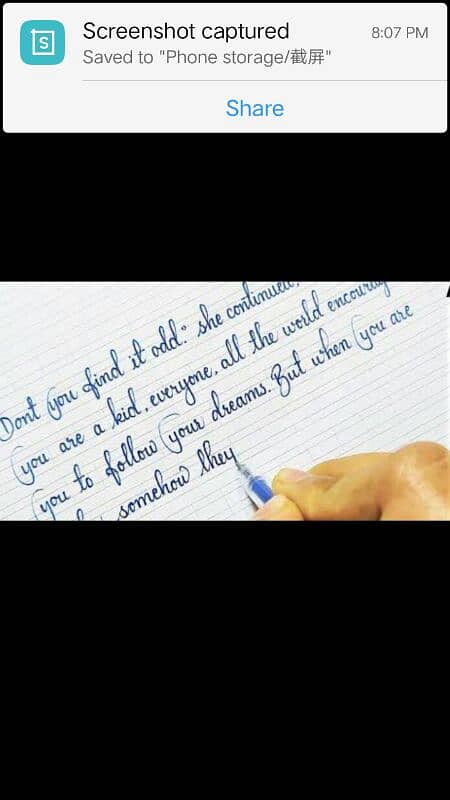 Screenshot captured
8:07 PM
Saved to "Phone storage/截屏"
Share
Dont you find it odd." she continued,
you are a kid, everyone, all the world encourag
you to follow your dreams. But when you are
somehow they